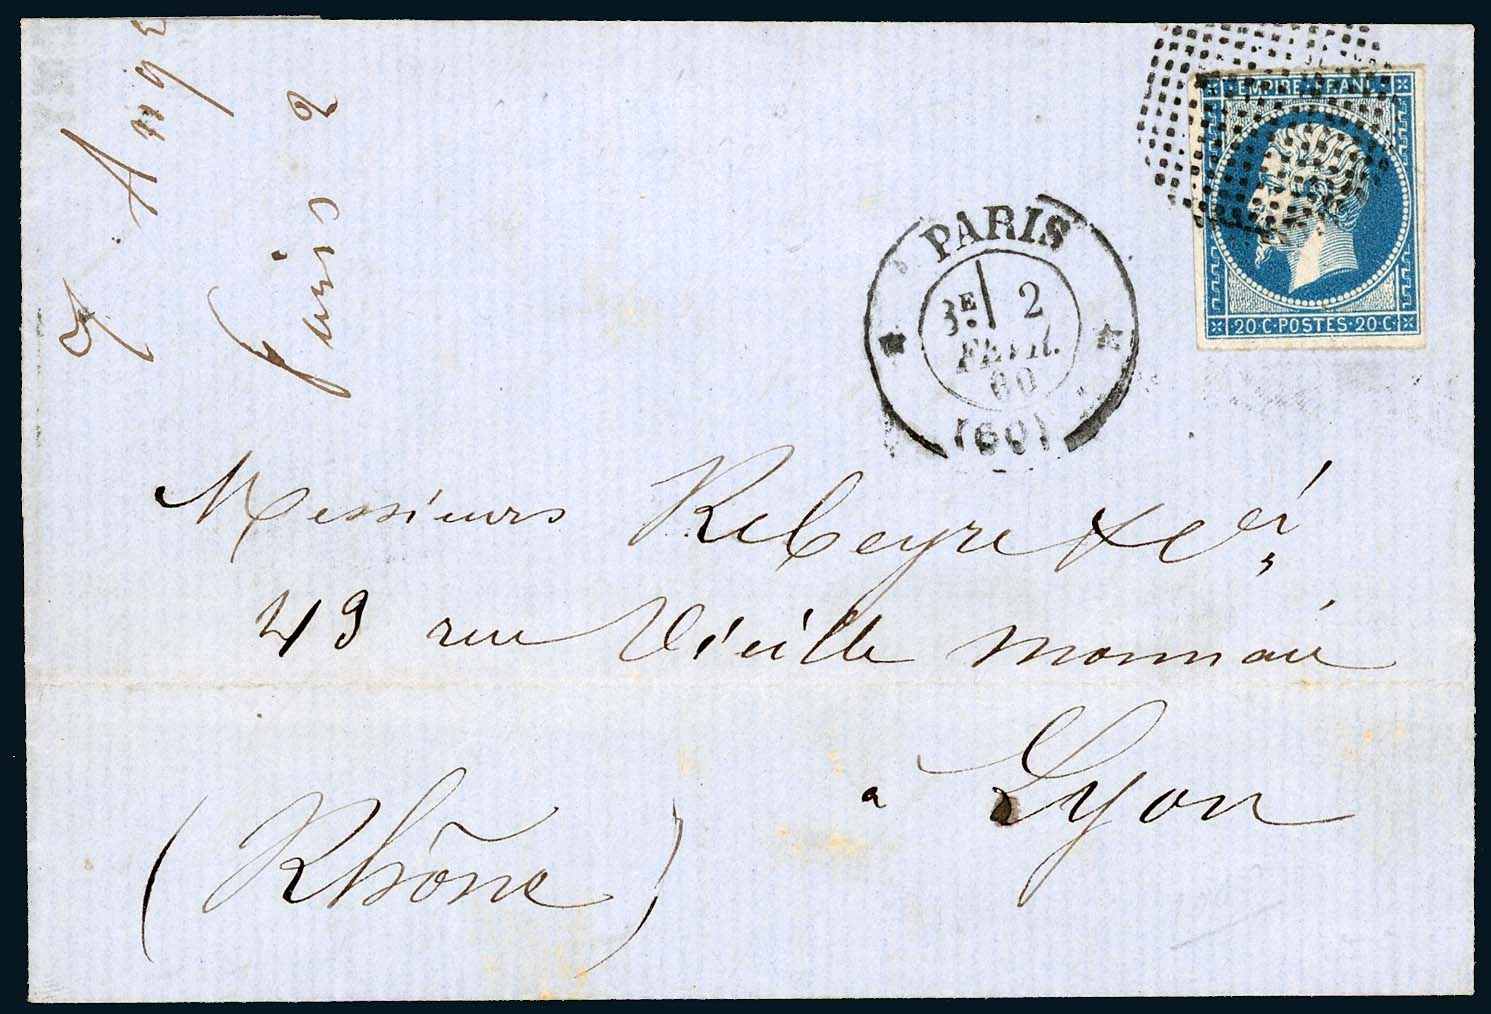 EMPIRE FRANC
20 C · POSTES · 20 C ·
PARIS
3E 2
FEVR.
60
(60)
Messieurs Rebeyre & Cie,
43 rue Vieille monnaie
a Lyon
(Rhône)
Paris 2